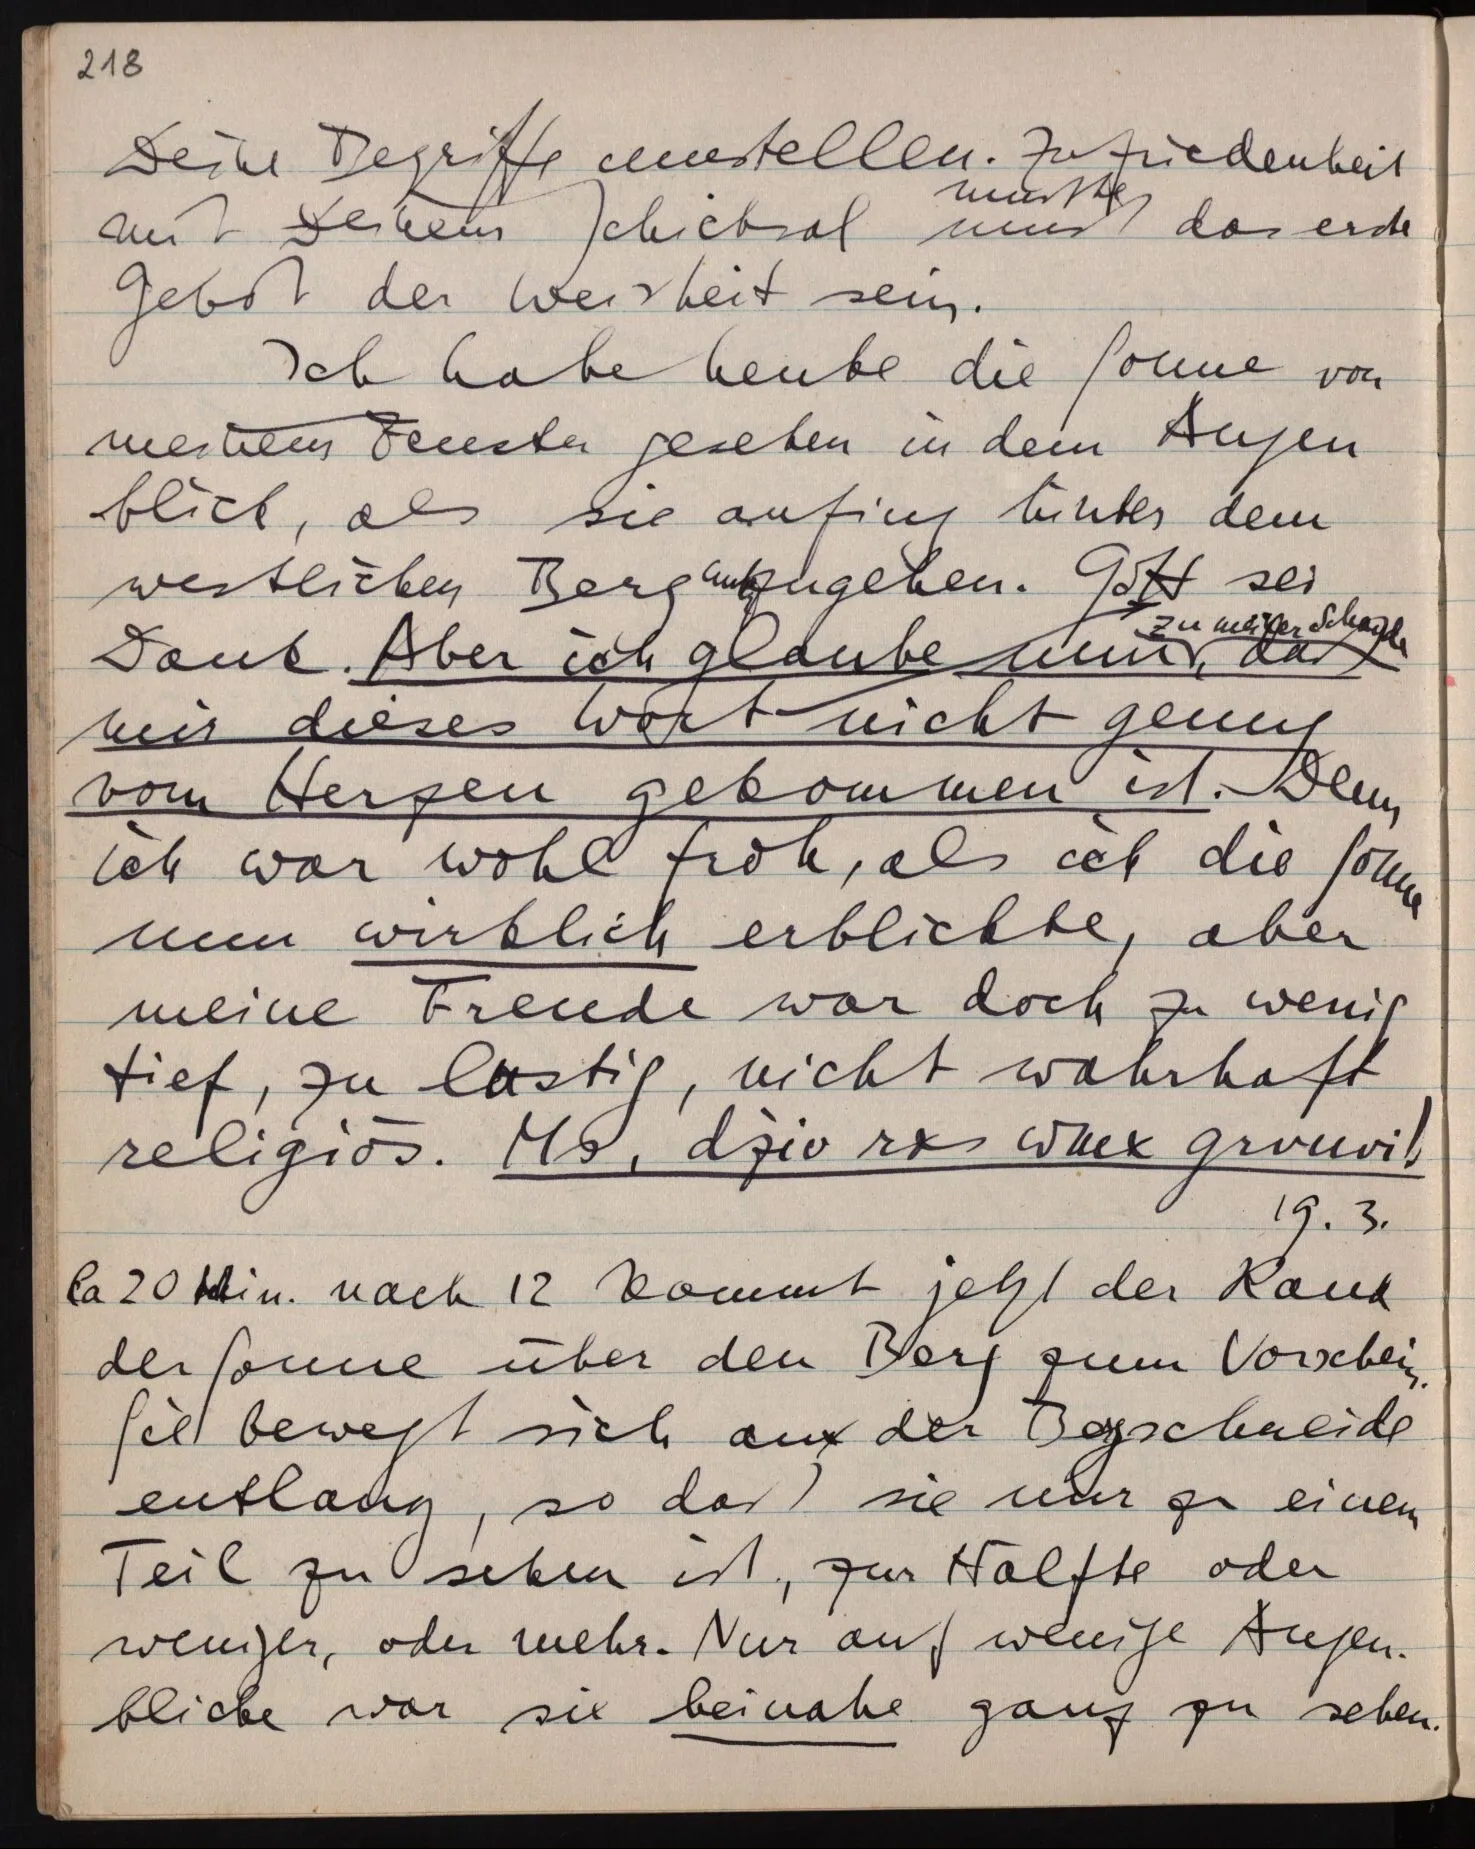 218
Deine Begriffe umstellen. Zufriedenheit
müßte
mit Deinem Schicksal muß das erste
Gebot der Weisheit sein.
Ich habe heute die Sonne von
meinem Fenster gesehen in dem Augen
blick, als sie anfing hinter dem
westlichen Berg unterzugehen. Gott sei
zu meiner Schande
Dank. Aber ich glaube nun, daß
mir dieses Wort nicht genug
vom Herzen gekommen ist. Denn
ich war wohl froh, als ich die Sonne
nun wirklich erblickte, aber
meine Freude war doch zu wenig
tief, zu lustig, nicht wahrhaft
religiös.
19. 3.
Ca 20 Min. nach 12 kommt jetzt der Rand
der Sonne über den Berg zum Vorschein.
Sie bewegt sich an der Bergschneide
entlang, so daß sie nur zu einem
Teil zu sehen ist, zur Hälfte oder
weniger, oder mehr. Nur auf wenige Augen-
blicke war sie beinahe ganz zu sehen.